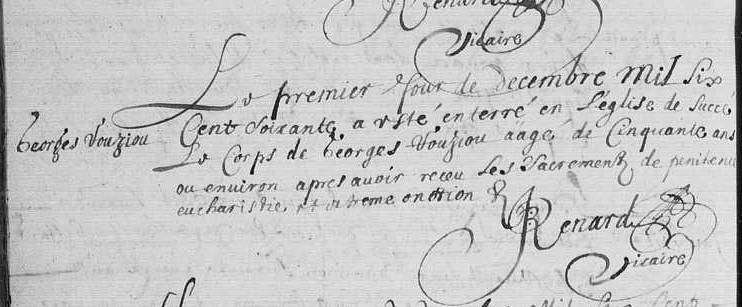 Renard
Vicaire
Le premier Jour de decembre Mil Six
Cent Soixante, a esté enterré en L'eglise de Succé
Georges Vouziou
Le Corps de Georges Vouziou aagé de Cinquante ans
ou environ apres avoir receu Les Sacrements de penitence
eucharistie, et extreme onction
Renard
Vicaire